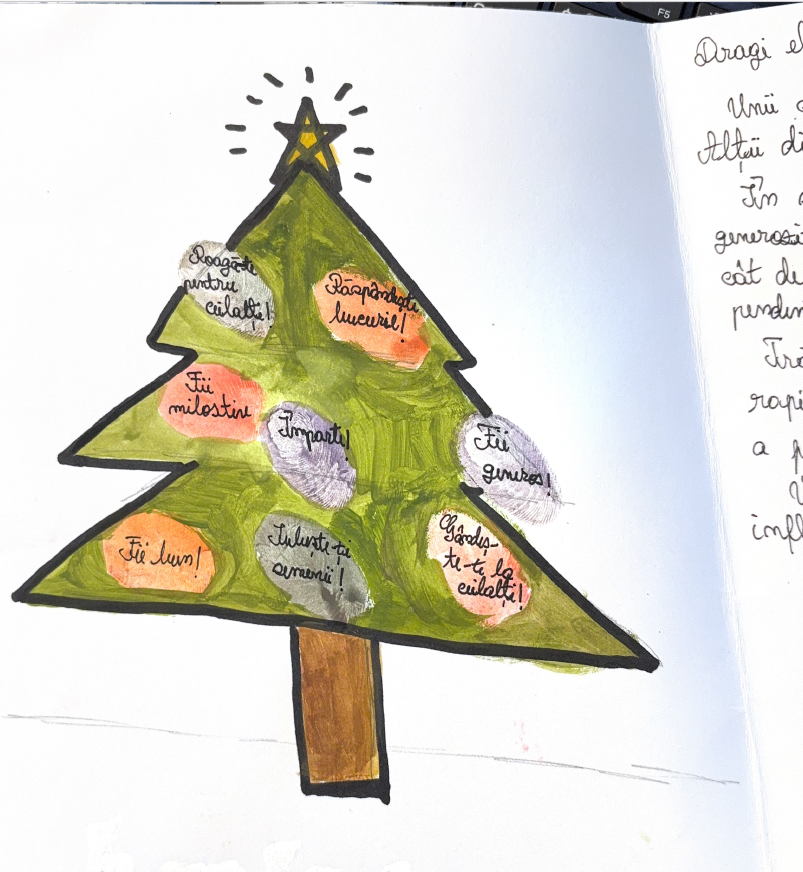 F5
Roagă-te
pentru
ceilalți!
Răspândește
bucurie!
Fii
milostiv
Împarte!
Fii
generos!
Fii bun!
Iubește-ți
semenii!
Gândeș-
te-te la
ceilalți!
Dragi el
Unii
Alții di
În
generozi
cât de
pendin
rapi
a p
infl